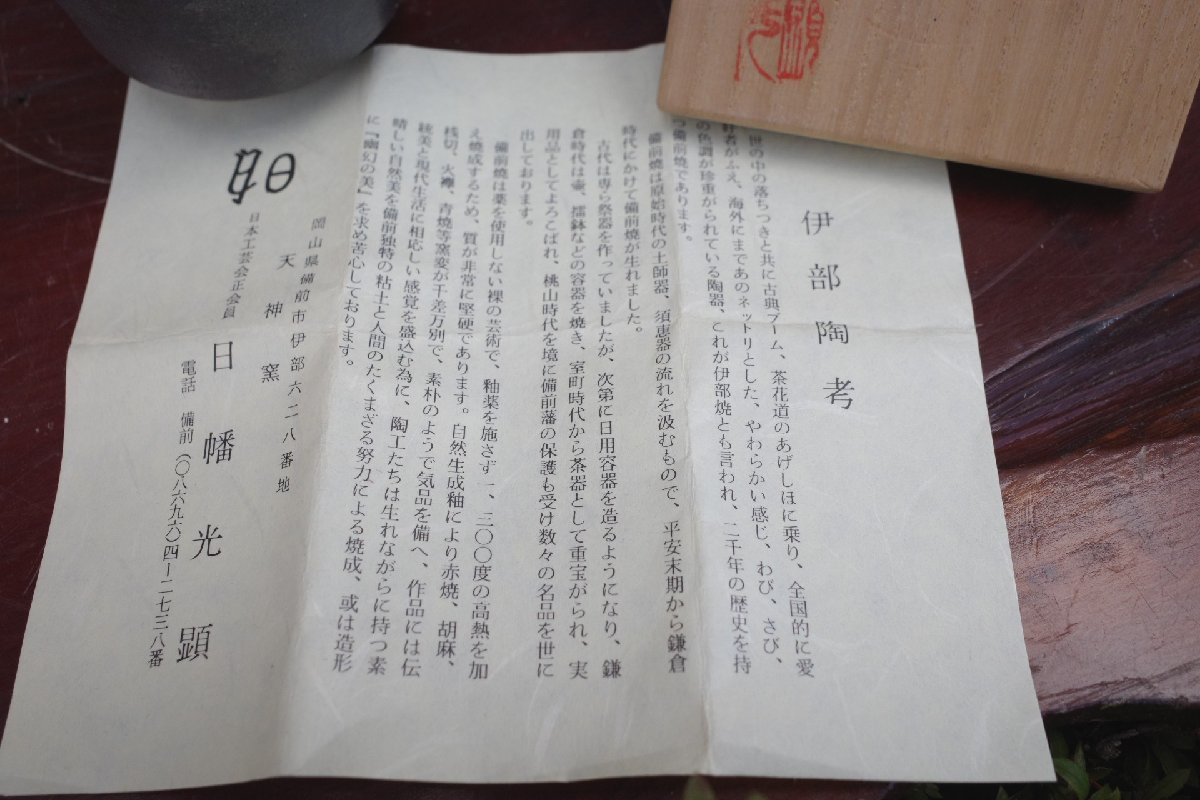 伊部陶考
世の中の落ちつきと共に古典ブーム、茶花道のあげしほに乗り、全国的に愛
好者がふえ、海外にまであのネットリとした、やわらかい感じ、わび、さび、
の色調が珍重がられている陶器、これが伊部焼とも言われ、二千年の歴史を持
つ備前焼であります。
備前焼は原始時代の土師器、須恵器の流れを汲むもので、平安末期から鎌倉
時代にかけて備前焼が生れました。
古代は専ら祭器を作っていましたが、次第に日用容器を造るようになり、鎌
倉時代は壷、擂鉢などの容器を焼き、室町時代から茶器として重宝がられ、実
用品としてよろこばれ、桃山時代を境に備前藩の保護も受け数々の名品を世に
出しております。
備前焼は薬を使用しない裸の芸術で、釉薬を施さず一、三〇〇度の高熱を加
え焼成するため、質が非常に堅硬であります。自然生成釉により赤焼、胡麻、
桟切、火襷、青焼等窯変が千差万別で、素朴のようで気品を備へ、作品には伝
統美と現代生活に相応しい感覚を盛込む為に、陶工たちは生れながらに持つ素
晴しい自然美を備前独特の粘土と人間のたくまざる努力による焼成、或は造形
に『幽幻の美』を求め苦心しております。
岡山県備前市伊部六二八番地
天神窯
日本工芸会正会員
日幡光顕
電話 備前(〇八六九六)四-二七三八番